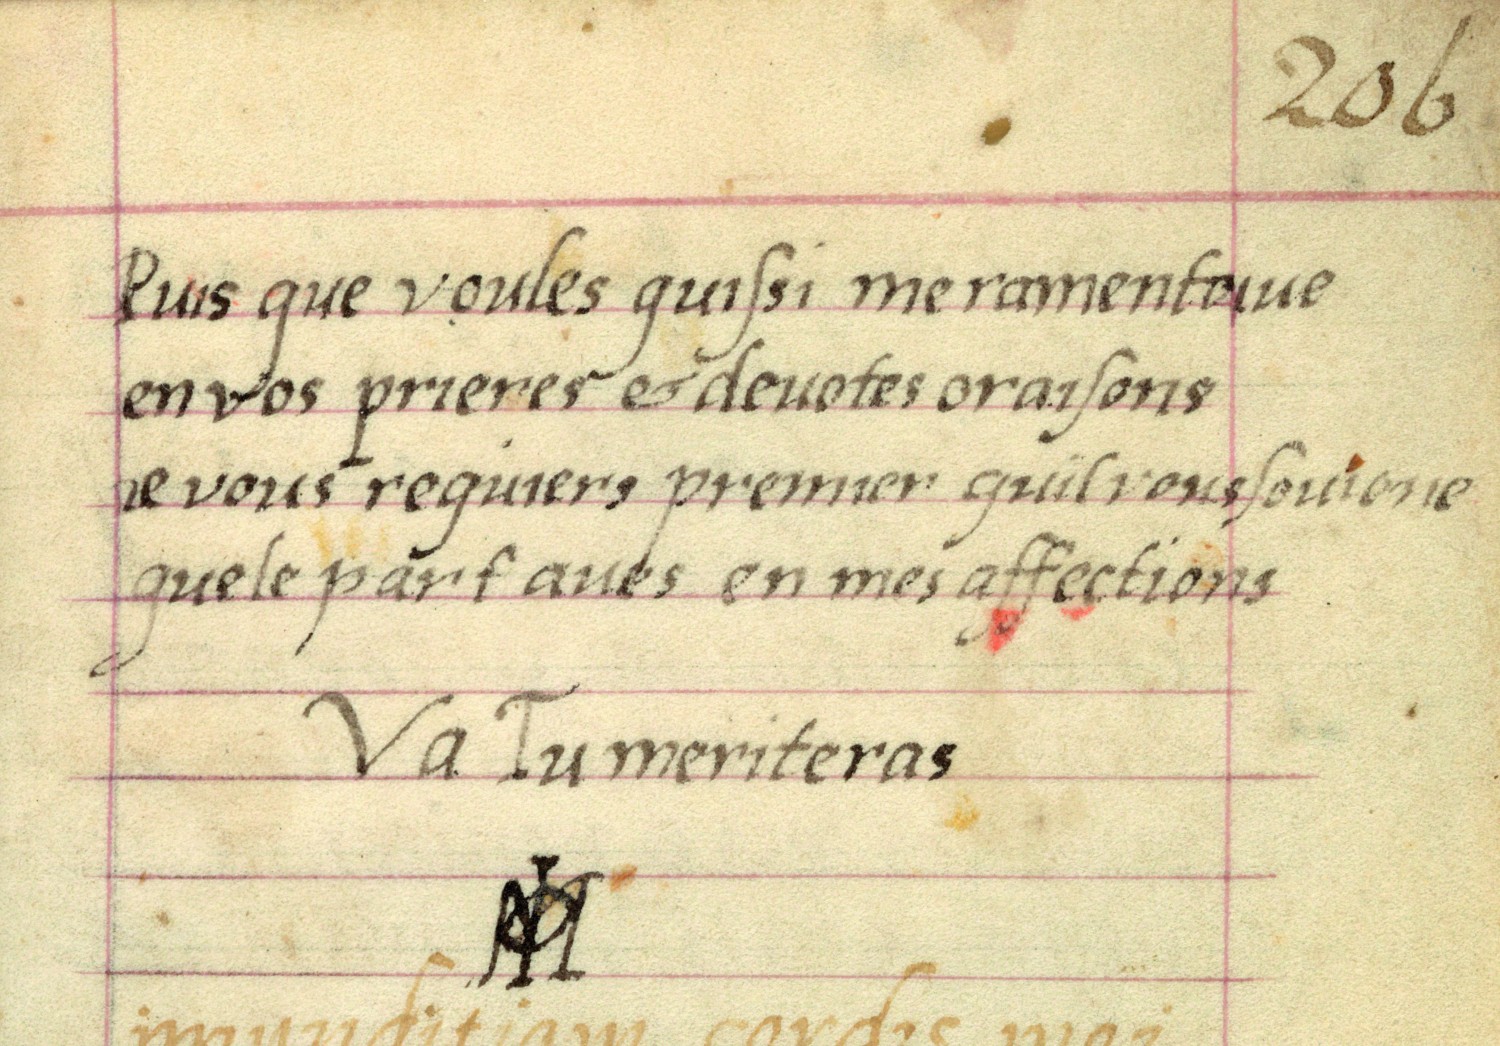 206
Puis que voules quissi me ramentoiue
en vos prieres & deuotes oraisons
ie vous requiers premier quil vous souuiene
quele part aues en mes affections
Va Tu meriteras
imunditiam cordis mei